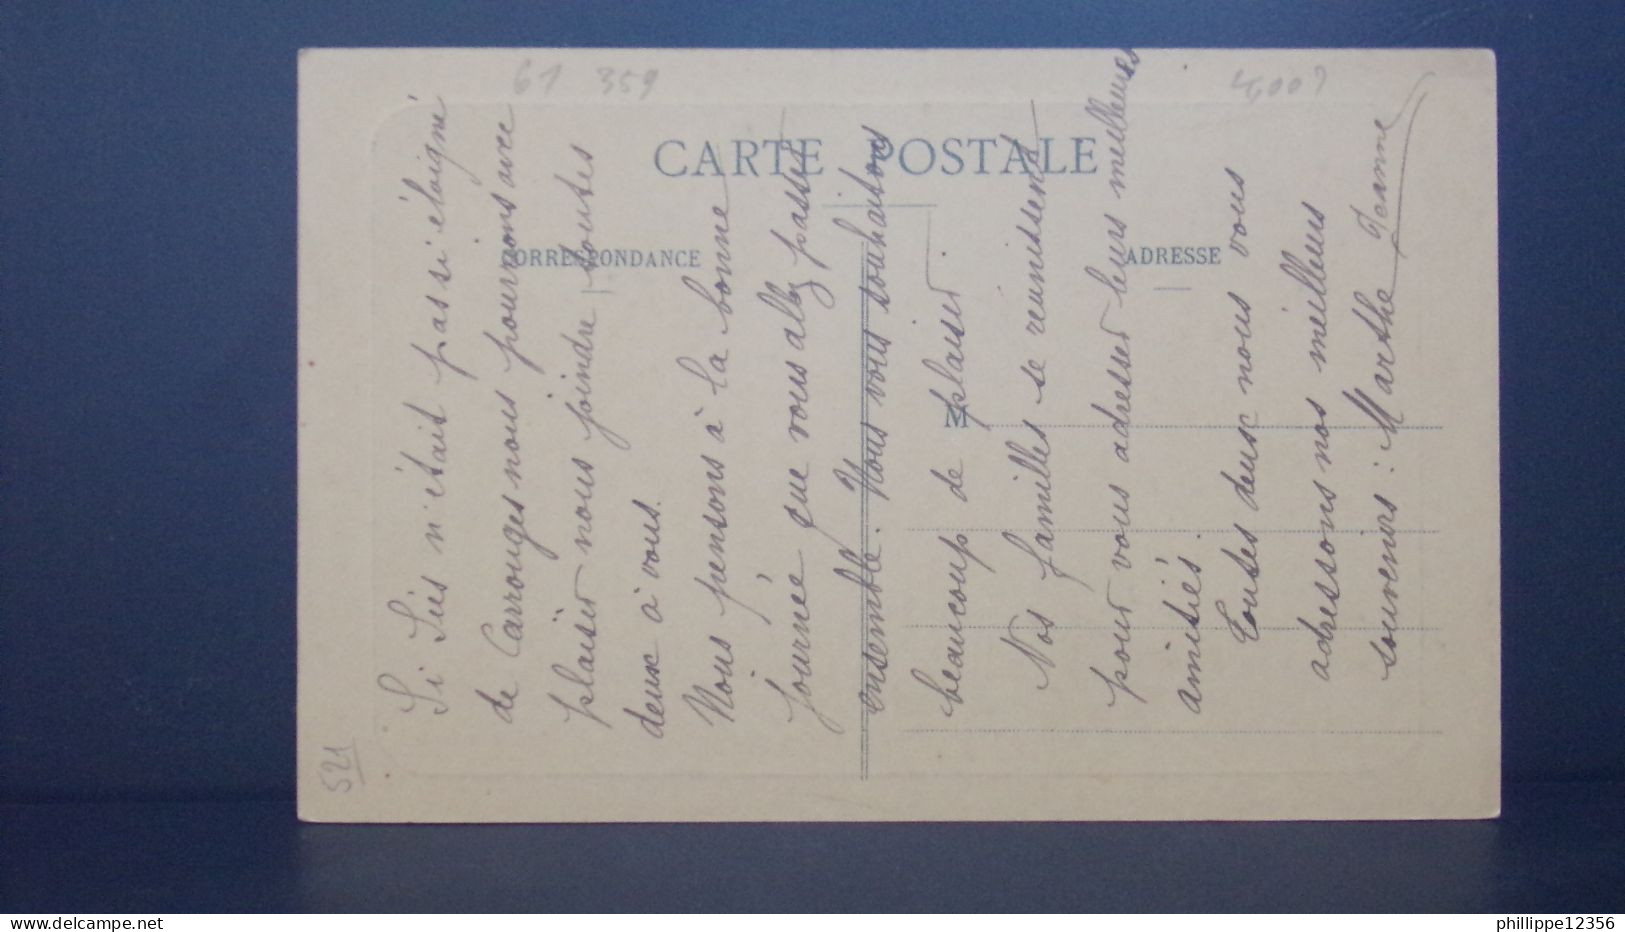 61 359
4,00?
CARTE POSTALE
CORRESPONDANCE
ADRESSE
M
Si Sées n'était pas si éloigné
de Carrouges nous pourrions avec
plaisir nous joindre toutes
deux à vous.
Nous pensons à la bonne
journée que vous allez passer
ensemble. Nous vous souhaitons
beaucoup de plaisir.
Nos familles se reunissent
pour vous adresser leurs meilleures
amitiés.
Toutes deux nous vous
adressons nos meilleurs
souvenirs : Marthe Jeanne
521
delcampe.net
phillippe12356